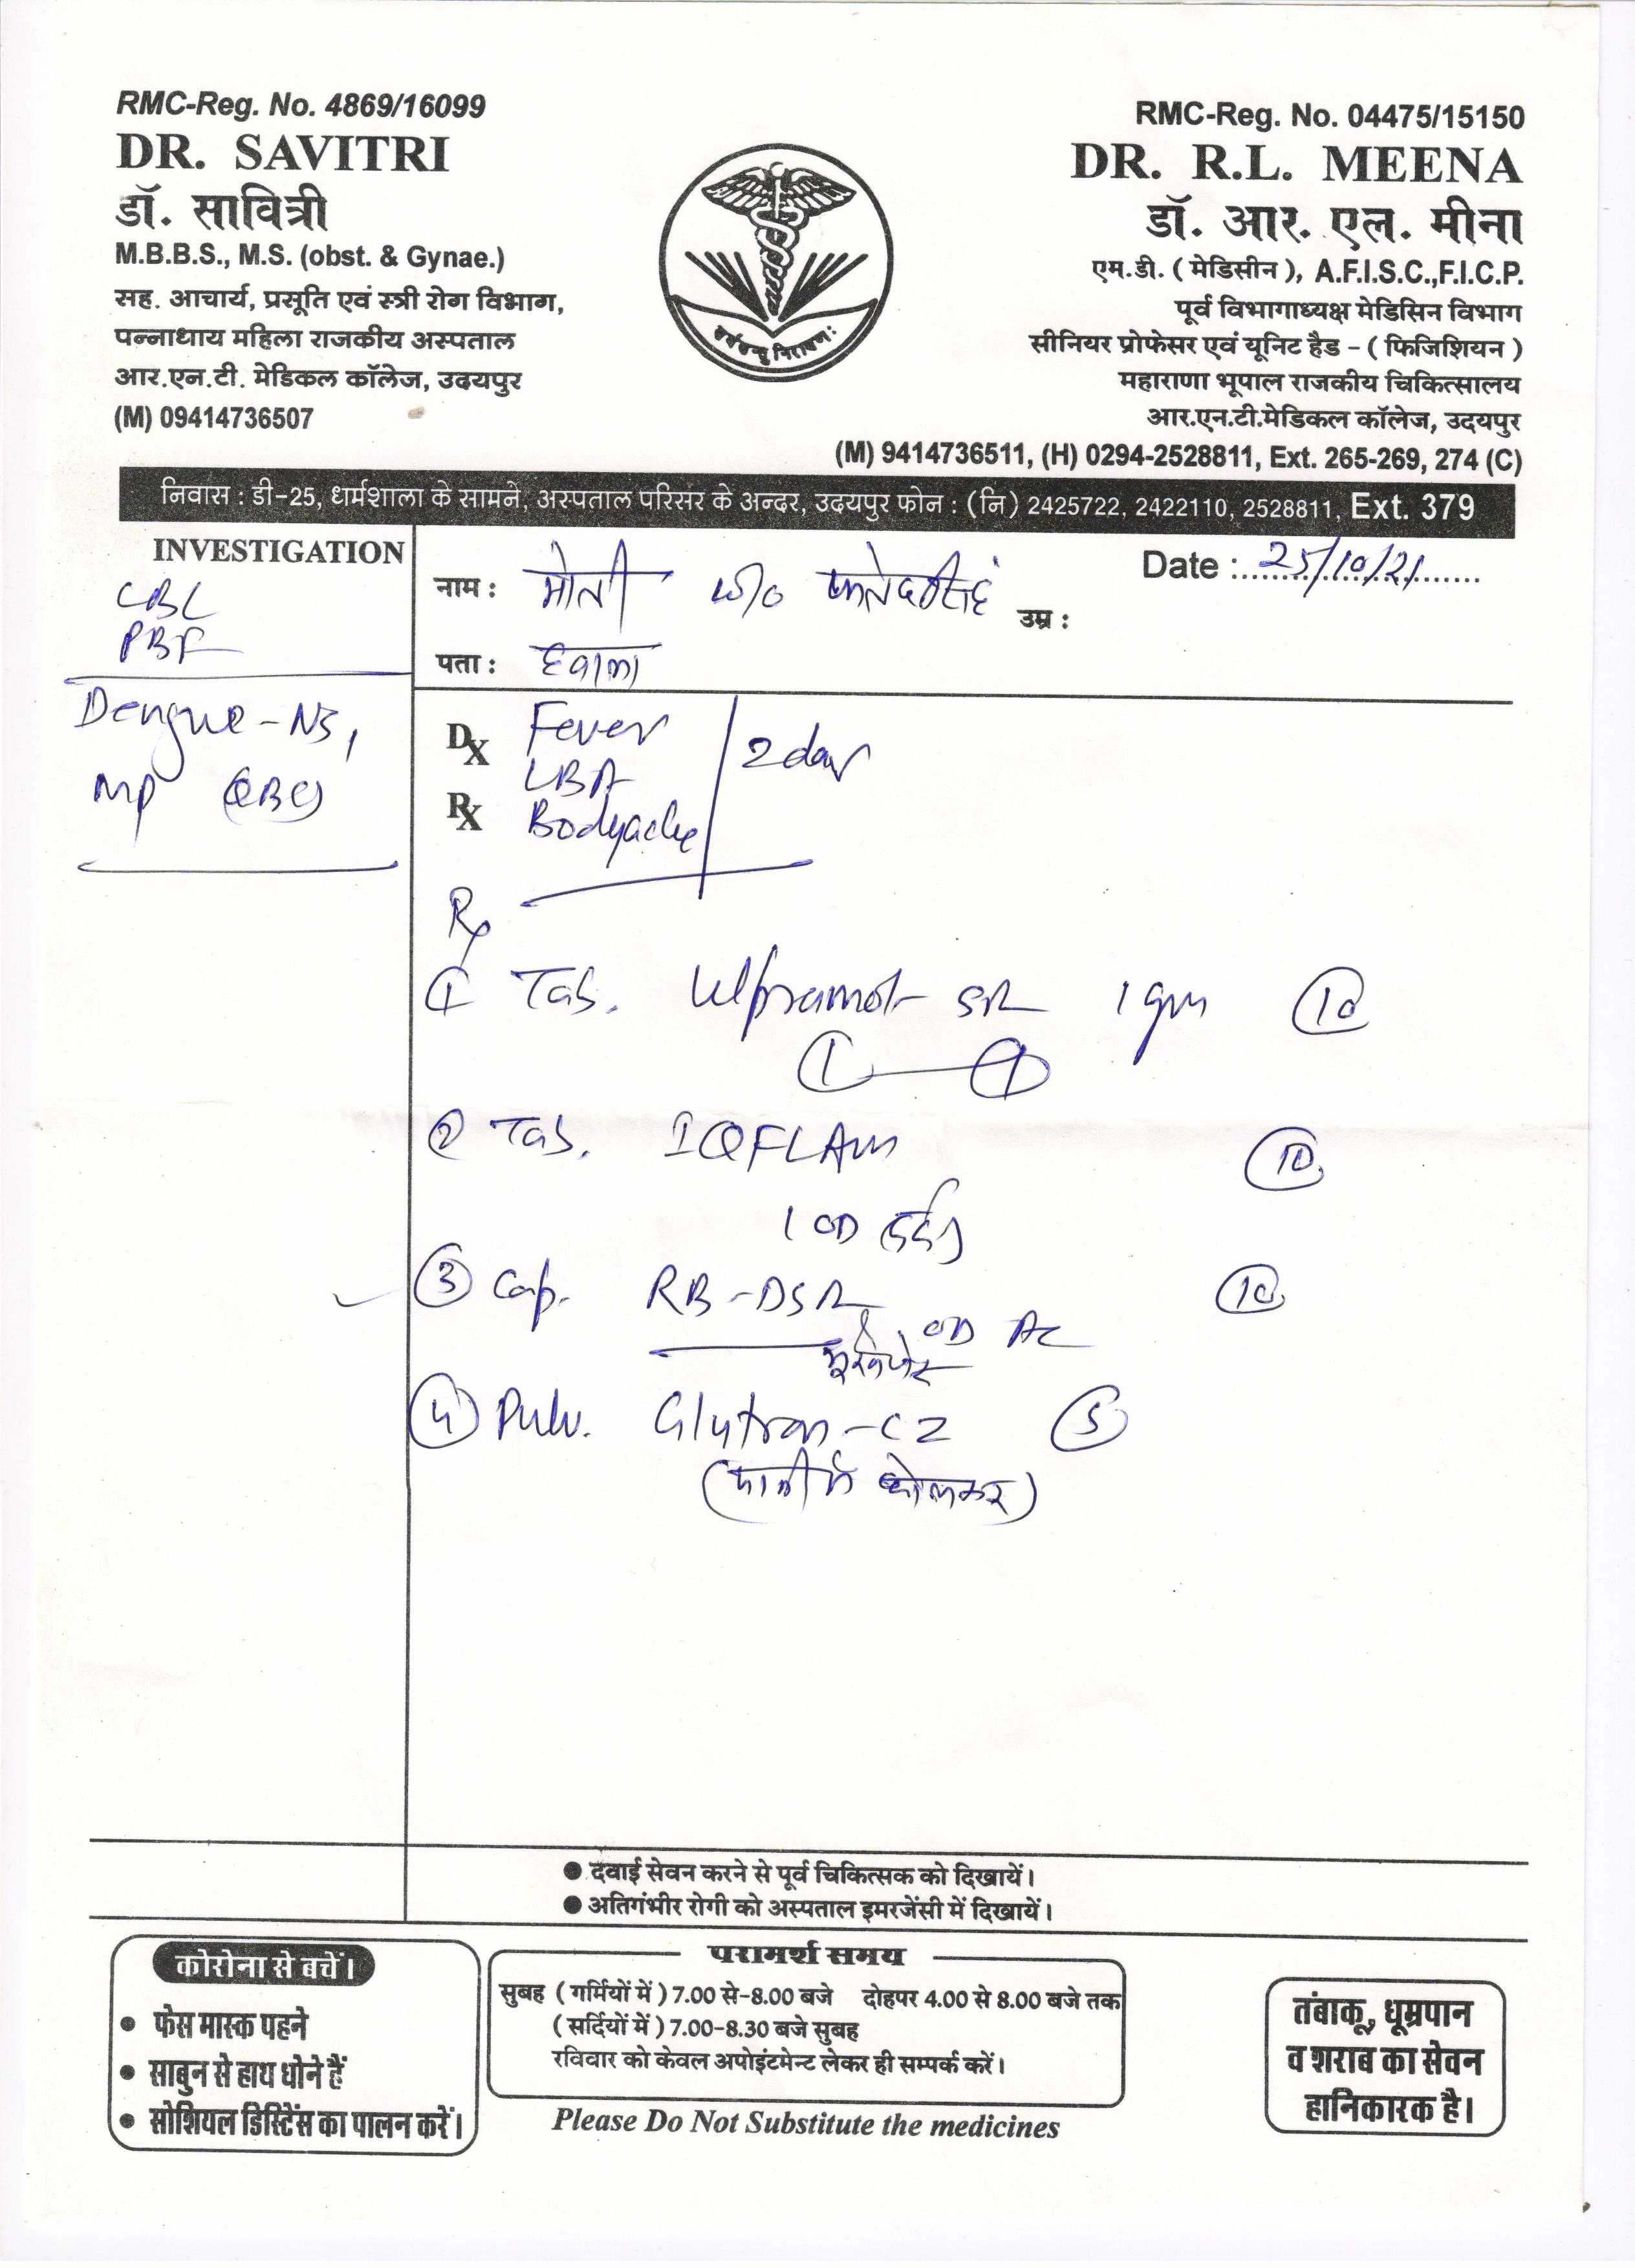 RMC-Reg. No. 4869/16099
DR. SAVITRI
डॉ. सावित्री
M.B.B.S., M.S. (obst. & Gynae.)
सह. आचार्य, प्रसूति एवं स्त्री रोग विभाग,
पन्नाधाय महिला राजकीय अस्पताल
आर.एन.टी. मेडिकल कॉलेज, उदयपुर
(M) 09414736507
RMC-Reg. No. 04475/15150
DR. R.L. MEENA
डॉ. आर. एल. मीना
एम.डी. ( मेडिसीन ), A.F.I.S.C.,F.I.C.P.
पूर्व विभागाध्यक्ष मेडिसिन विभाग
सीनियर प्रोफेसर एवं यूनिट हैड - ( फिजिशियन )
महाराणा भूपाल राजकीय चिकित्सालय
आर.एन.टी.मेडिकल कॉलेज, उदयपुर
(M) 9414736511, (H) 0294-2528811, Ext. 265-269, 274 (C)
निवास : डी-25, धर्मशाला के सामने, अस्पताल परिसर के अन्दर, उदयपुर फोन : (नि) 2425722, 2422110, 2528811, Ext. 379
INVESTIGATION
CBC
PBF
Dengue-NS1
MP (QBC)
Date : 25/10/21
नाम : मोती W/O
उम्र :
पता :
Dx Fever
LBA 2 day
Rx Bodyache
Rx
① Tab. SR 1gm ⑩
① ①
② Tab. IQFLAM ⑩
1 OD (दर्द)
③ Cap. RB-DSR ⑩
OD AC
④ Pulv. Glutron-CZ ⑤
(पानी में घोलकर)
● दवाई सेवन करने से पूर्व चिकित्सक को दिखायें।
● अतिगंभीर रोगी को अस्पताल इमरजेंसी में दिखायें।
कोरोना से बचें।
• फेस मास्क पहने
• साबुन से हाथ धोने हैं
• सोशियल डिस्टिेंस का पालन करें।
परामर्श समय
सुबह ( गर्मियों में ) 7.00 से-8.00 बजे दोहपर 4.00 से 8.00 बजे तक
( सर्दियों में ) 7.00-8.30 बजे सुबह
रविवार को केवल अपोइंटमेन्ट लेकर ही सम्पर्क करें।
Please Do Not Substitute the medicines
तंबाकू, धूम्रपान
व शराब का सेवन
हानिकारक है।